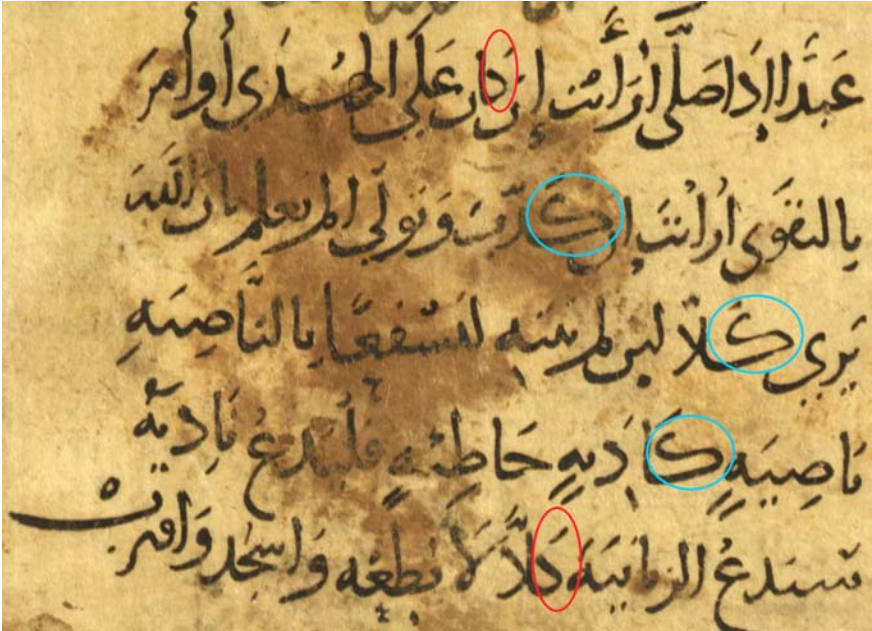 عَبدًا اِذَا صَلَّى أرَأيتَ إن كَان عَلَى الهُدَى أو أمَرَ
بِالتقوَى ارَايتَ اِن كَذّبَ وَتَولّى الم يَعلم بِان اللّهَ
يَرى كَلّا لين لم ينتهِ لنَسْفعًا بِالنَّاصِيَهِ
نَاصِيَهٍ كَاذِبهٍ خَاطِئهٍ فليَدعُ نَادِيهُ
سَندعُ الزبَانيَه كَلَّا لَا تطِعه وَاسجُد وَاقترب